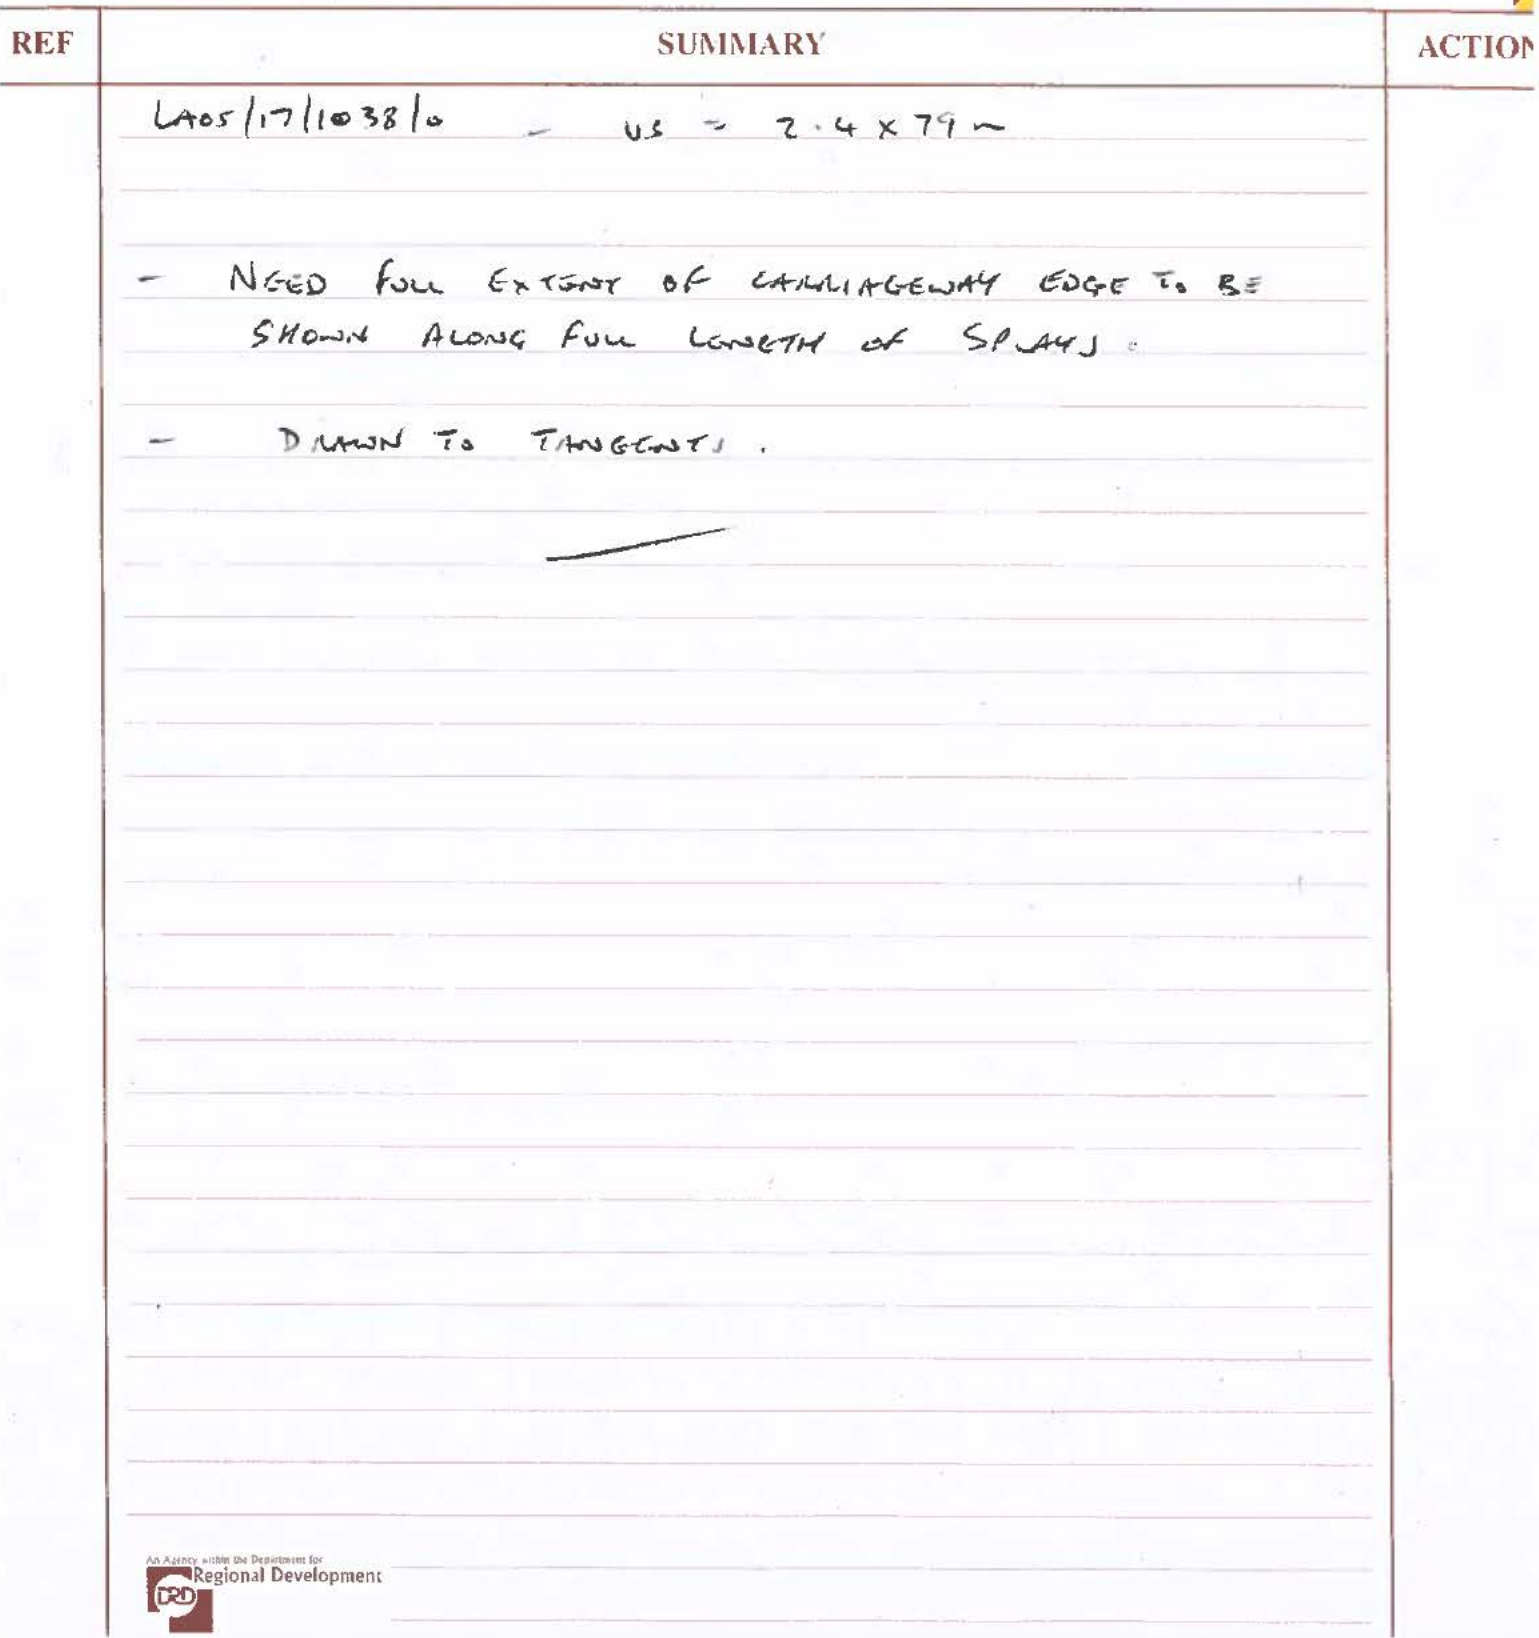 REF SUMMARY ACTION
LA05/17/1038/0 - VS = 2.4 x 79m
- NEED FULL EXTENT OF CARRIAGEWAY EDGE TO BE
SHOWN ALONG FULL LENGTH OF SPLAYS.
- DRAWN TO TANGENTS.
An Agency within the Department for
Regional Development
DRD